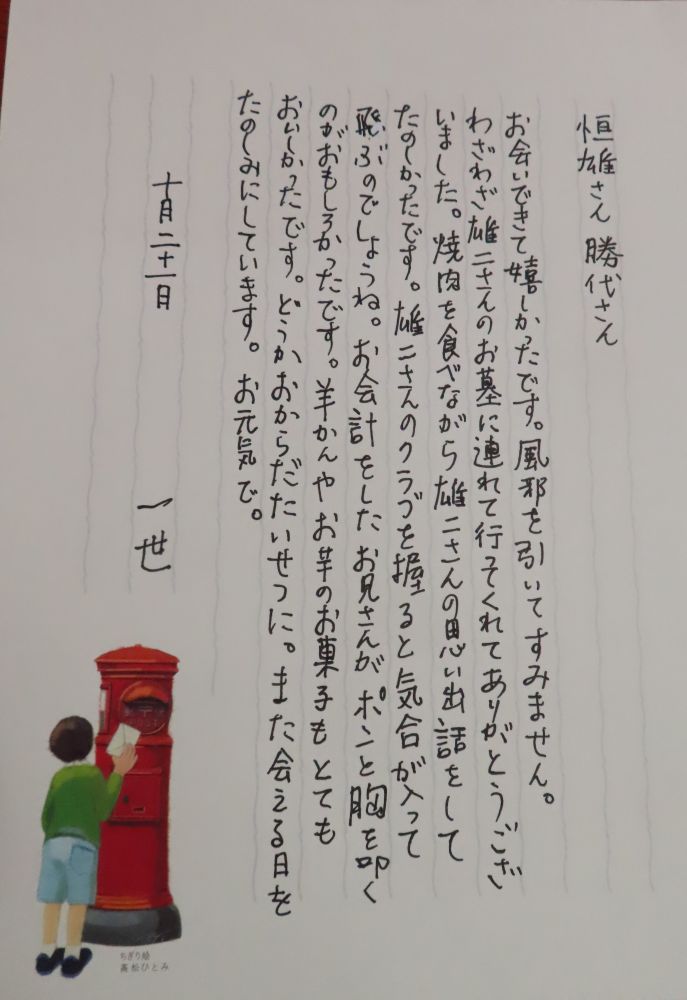 恒雄さん 勝代さん
お会いできて嬉しかったです。風邪を引いてすみません。
わざわざ雄二さんのお墓に連れて行ってくれてありがとうござ
いました。焼肉を食べながら雄二さんの思い出話をして
たのしかったです。雄二さんのクラブを握ると気合が入って
飛ぶのでしょうね。お会計をしたお兄さんがポンと胸を叩く
のがおもしろかったです。羊かんやお芋のお菓子もとても
おいしかったです。どうかおからだたいせつに。また会える日を
たのしみにしています。お元気で。
十月二十一日
一世
ちぎり絵
高松ひとみ